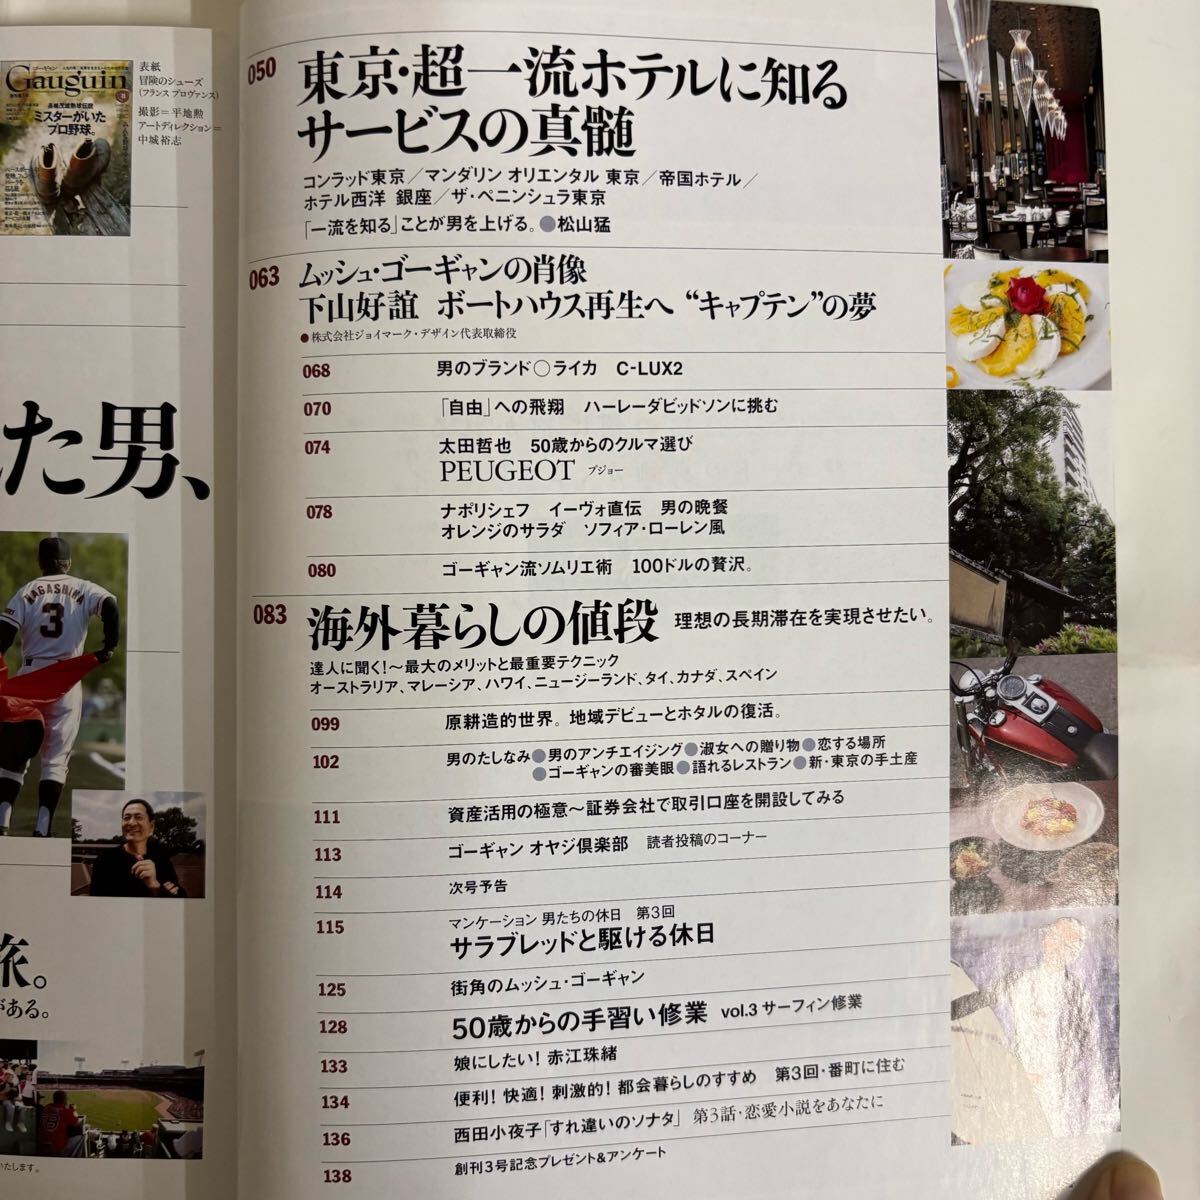 ゴーギャン
Gauguin
長嶋茂雄熱球伝説
ミスターがいた
プロ野球。
表紙
冒険のシューズ
(フランス プロヴァンス)
撮影=平地勲
アートディレクション=
中城裕志
た男、
NAGASHIMA
3
旅。
がある。
いたします。
050 東京・超一流ホテルに知る
サービスの真髄
コンラッド東京/マンダリン オリエンタル 東京/帝国ホテル/
ホテル西洋 銀座/ザ・ペニンシュラ東京
「一流を知る」ことが男を上げる。●松山猛
063 ムッシュ・ゴーギャンの肖像
下山好誼 ボートハウス再生へ “キャプテン”の夢
●株式会社ジョイマーク・デザイン代表取締役
068 男のブランド○ライカ C-LUX2
070 「自由」への飛翔 ハーレーダビッドソンに挑む
074 太田哲也 50歳からのクルマ選び
PEUGEOT プジョー
078 ナポリシェフ イーヴォ直伝 男の晩餐
オレンジのサラダ ソフィア・ローレン風
080 ゴーギャン流ソムリエ術 100ドルの贅沢。
083 海外暮らしの値段 理想の長期滞在を実現させたい。
達人に聞く!~最大のメリットと最重要テクニック
オーストラリア、マレーシア、ハワイ、ニュージーランド、タイ、カナダ、スペイン
099 原耕造的世界。地域デビューとホタルの復活。
102 男のたしなみ●男のアンチエイジング●淑女への贈り物●恋する場所
●ゴーギャンの審美眼●語れるレストラン●新・東京の手土産
111 資産活用の極意~証券会社で取引口座を開設してみる
113 ゴーギャン オヤジ倶楽部 読者投稿のコーナー
114 次号予告
115 マンケーション 男たちの休日 第3回
サラブレッドと駆ける休日
125 街角のムッシュ・ゴーギャン
128 50歳からの手習い修業 vol.3 サーフィン修業
133 娘にしたい! 赤江珠緒
134 便利! 快適! 刺激的! 都会暮らしのすすめ 第3回・番町に住む
136 西田小夜子「すれ違いのソナタ」 第3話・恋愛小説をあなたに
138 創刊3号記念プレゼント&アンケート